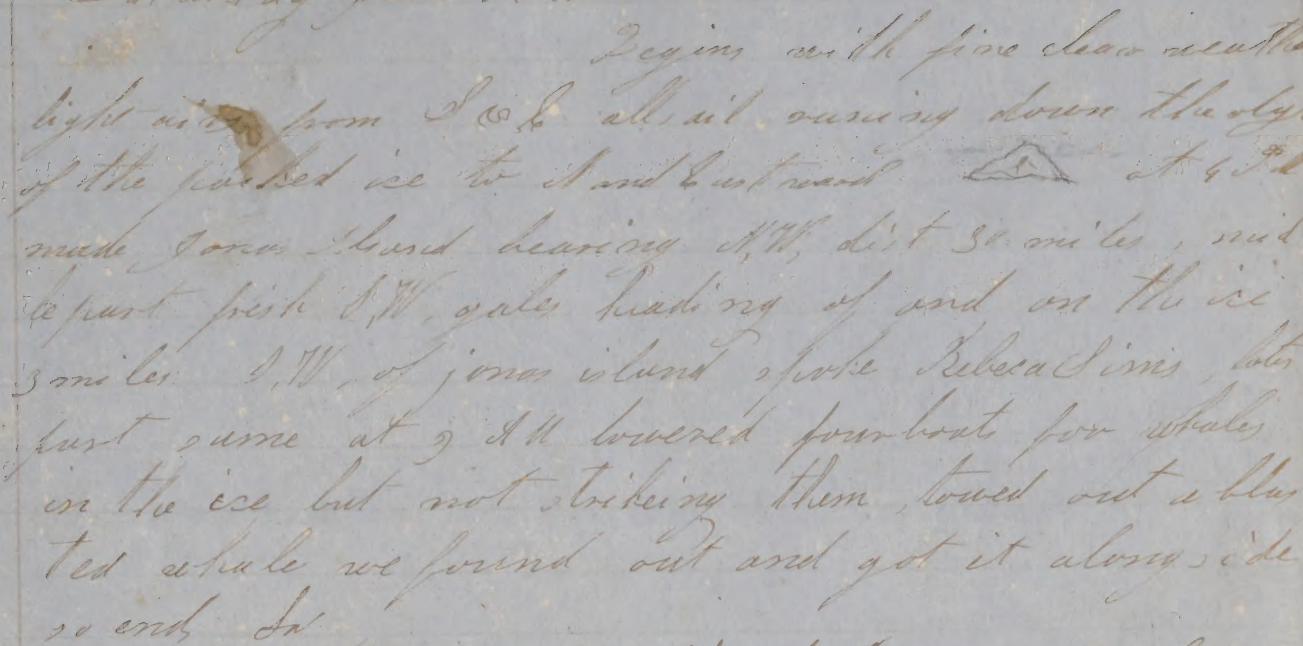 Begins with fine clear weathe
light airs from S & E all sail runing down the edge
of the packed ice to N and Eastward at 4 P M
made Jonas Island bearing N,W, dist 30 miles, mid
le part fresh S,W, gales heading of and on the ice
3 miles S,W, of jonas island spoke Rebeca Sims, later
part same at 9 AM lowered four boats for whales
in the ice but not strikeing them, towed out a blas
ted whale we found out and got it alongside
so ends